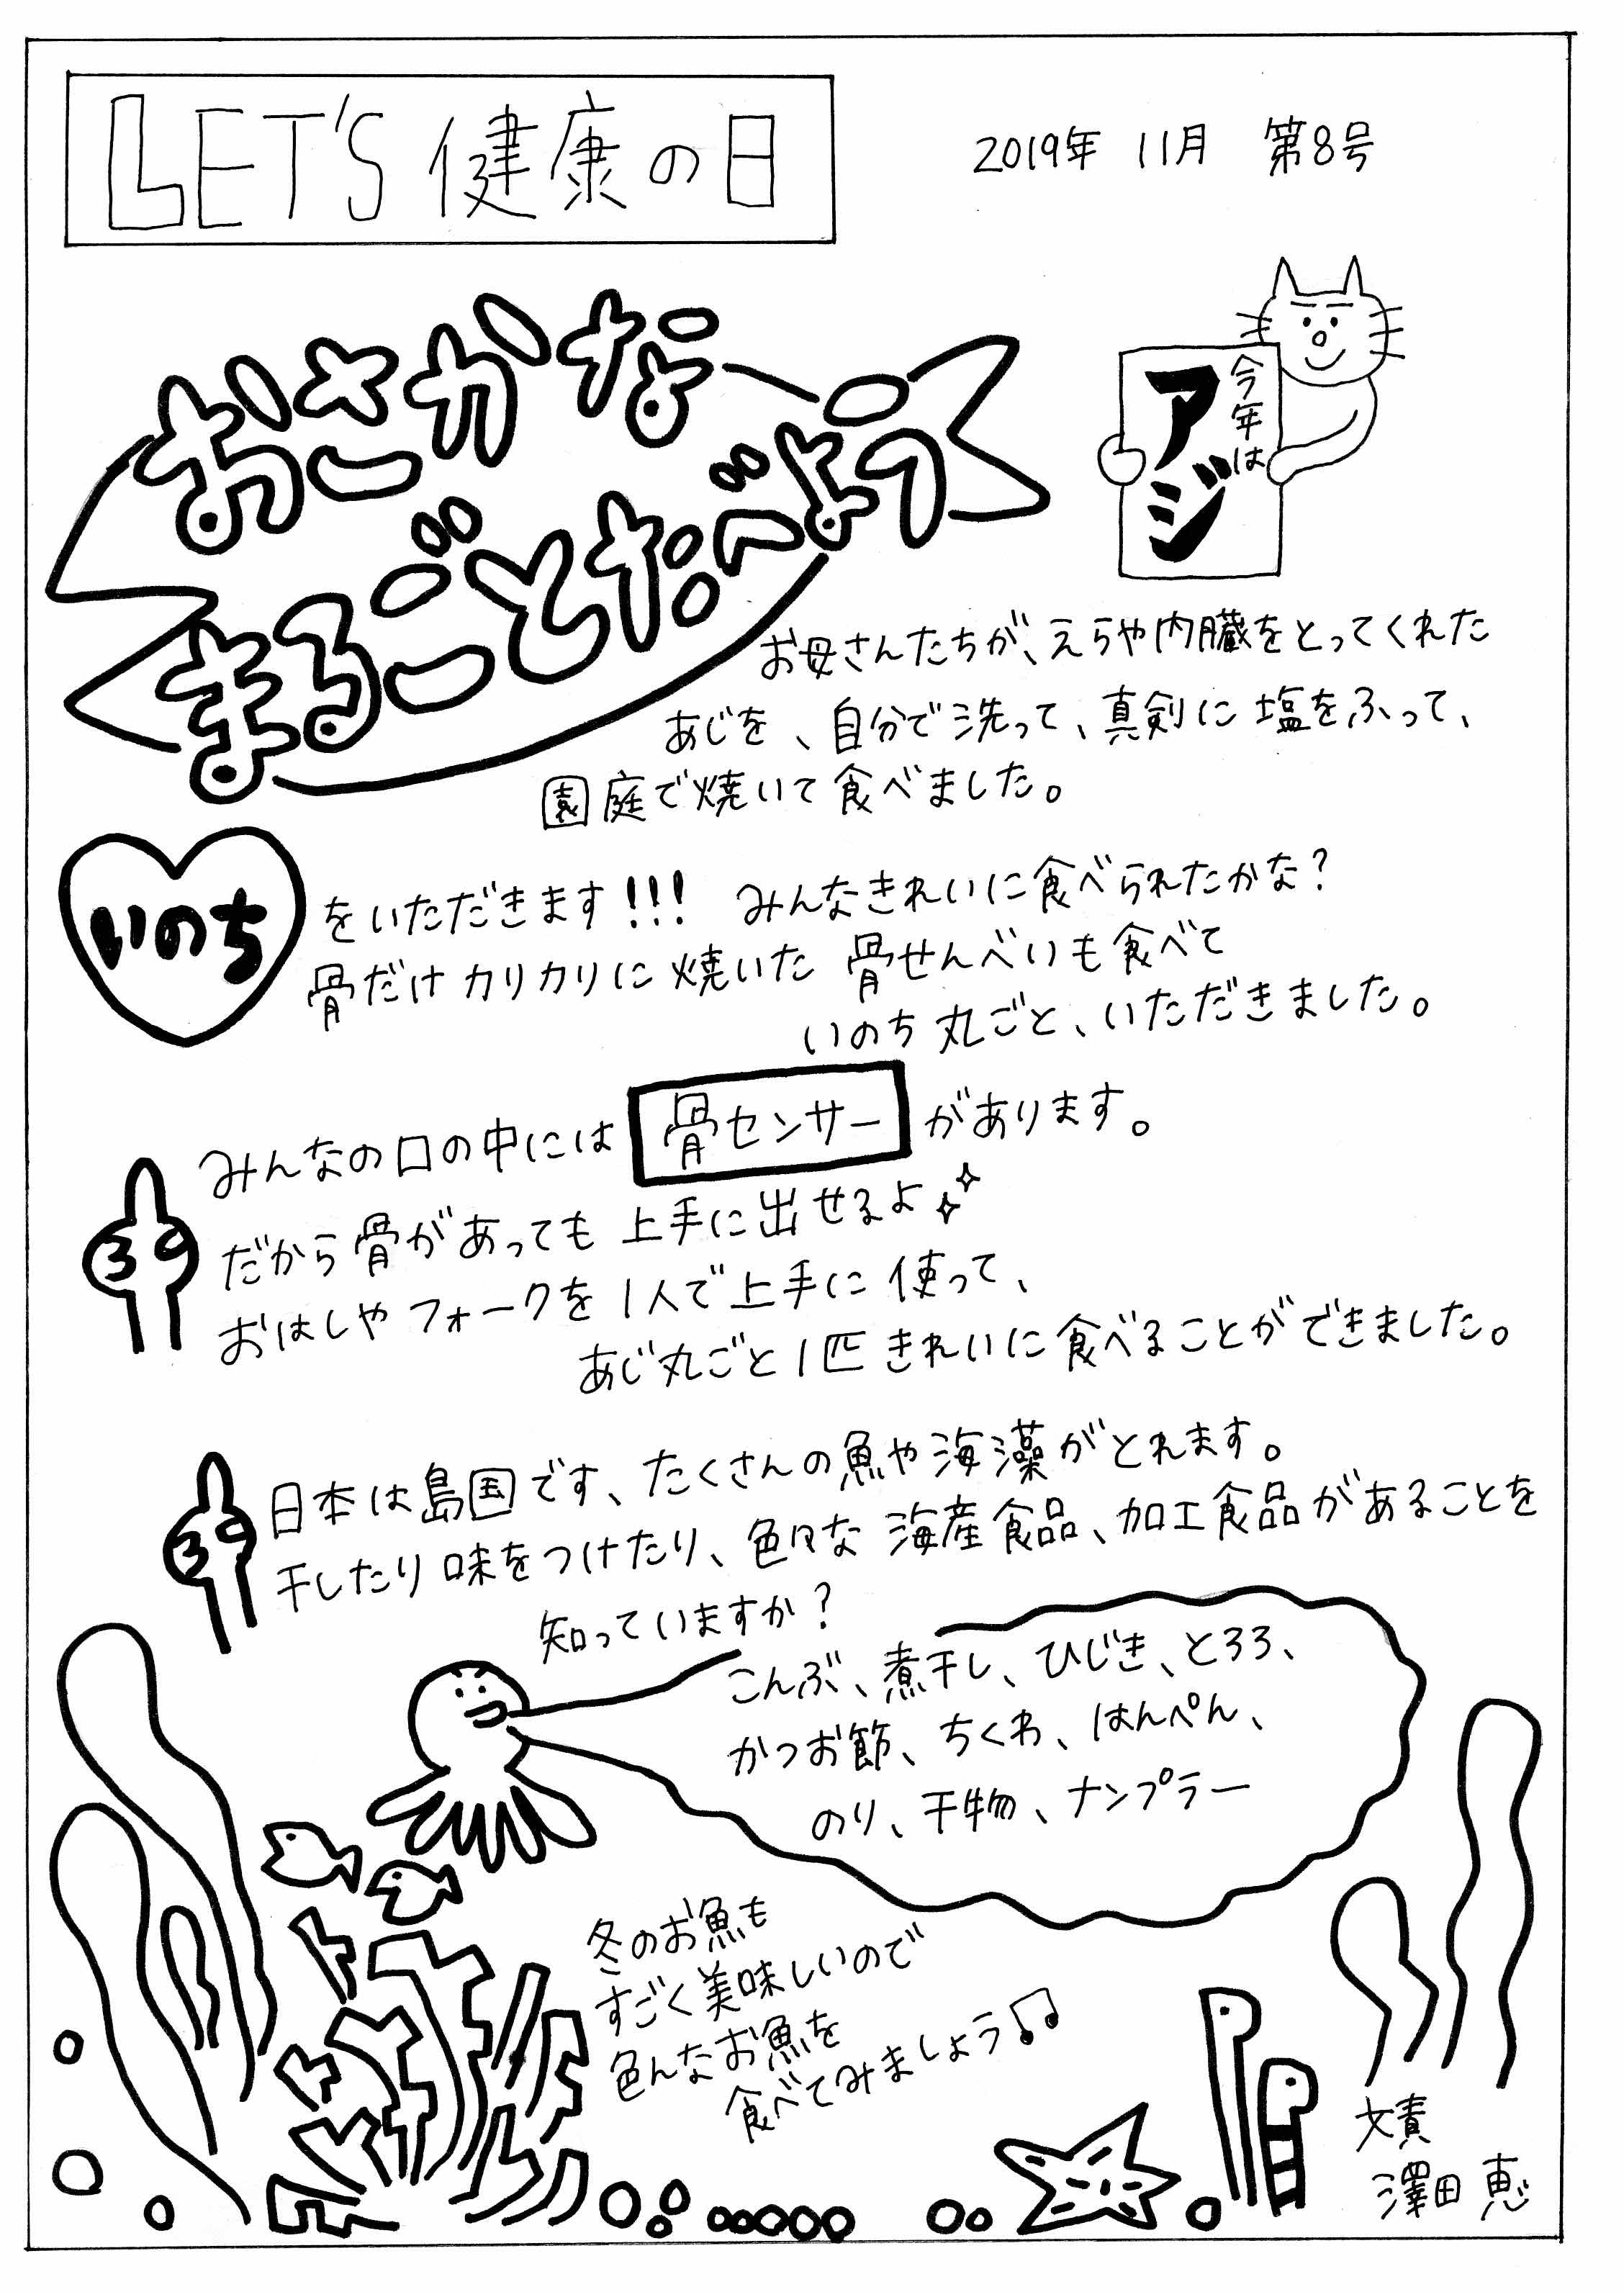 LET'S 健康の日
2019年 11月 第8号
おさかな
まるごとたべよう
今年は
アジ
お母さんたちが、えらや内臓をとってくれた
あじを、自分で洗って、真剣に塩をふって、
園庭で焼いて食べました。
いのちをいただきます!!! みんなきれいに食べられたかな?
骨だけカリカリに焼いた 骨せんべいも食べて
いのち丸ごと、いただきました。
みんなの口の中には 骨センサー があります。
だから骨があっても上手に出せるよ
おはしやフォークを1人で上手に使って、
あじ丸ごと1匹きれいに食べることができました。
日本は島国です、たくさんの魚や海藻がとれます。
干したり味をつけたり、色々な海産食品、加工食品があることを
知っていますか?
こんぶ、煮干し、ひじき、とろろ、
かつお節、ちくわ、はんぺん、
のり、干物、ナンプラー
冬のお魚も
すごく美味しいので
色んなお魚を
食べてみましょう♫
文責
澤田 恵